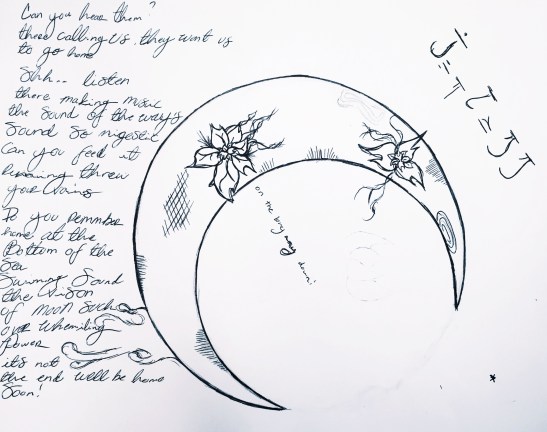 Can you hear them?
there calling us. they want us
to go home
Shh.. listen
there making music
the sound of the ways
Sound so migestic
Can you feel it
threw
your vains
Do you remmber
home at the
Bottom of the
Sea
Sound
the
of moon such
over
Power
it's not
the end well be home
Soon!
on the
way down!